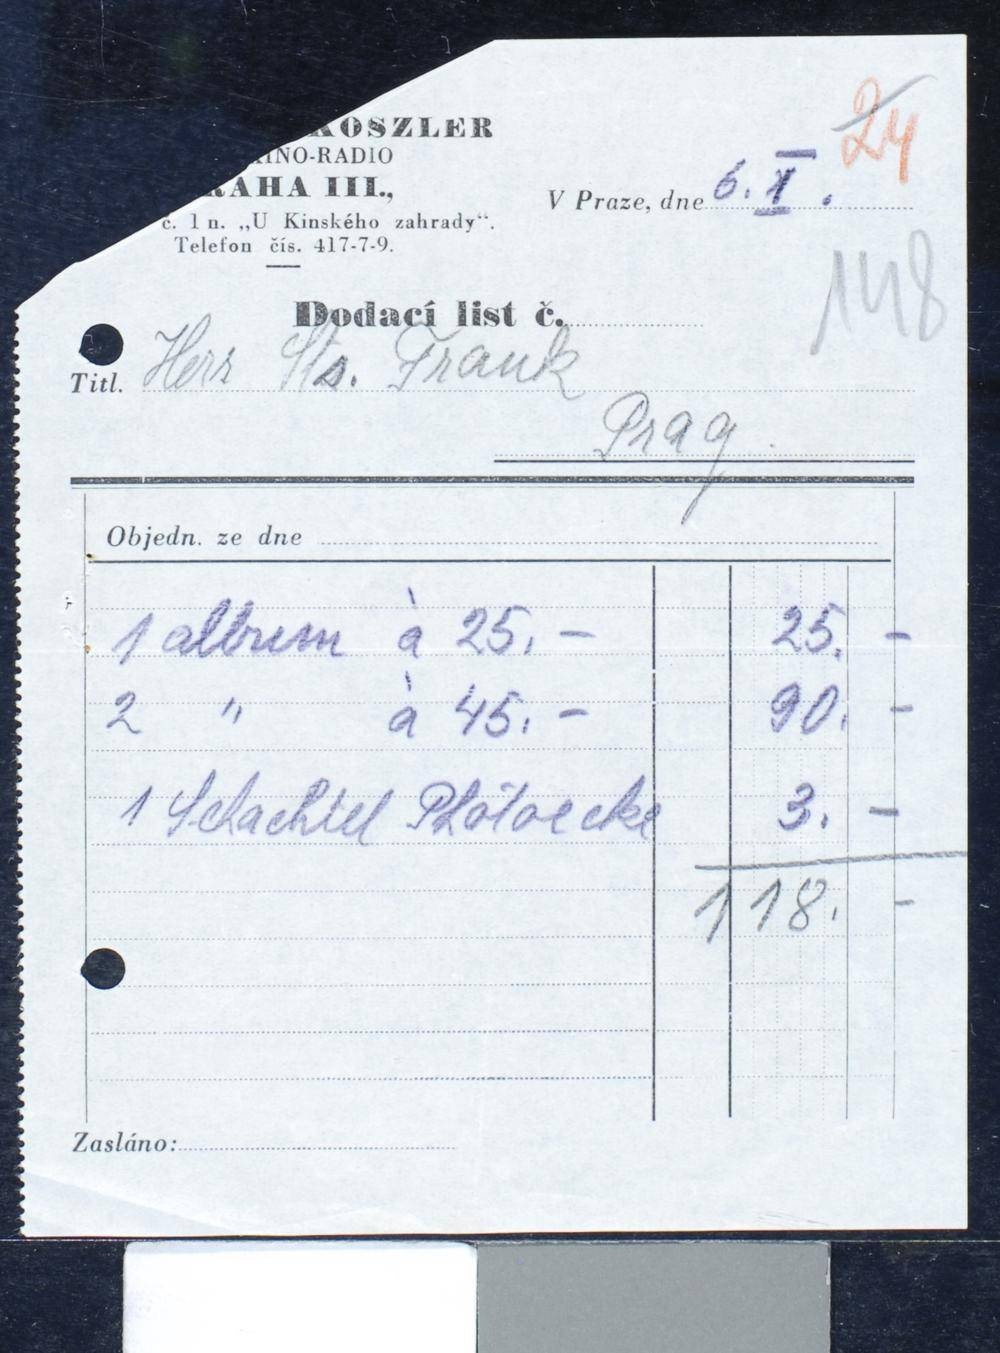 KOSZLER
KINO-RADIO
PRAHA III.,
č. 1 n. „U Kinského zahrady“.
Telefon čís. 417-7-9.
24
V Praze, dne 6. X.
148
Dodací list č.
Titl. Herr Sts. Frank
Prag
Objedn. ze dne
1 album à 25.- 25.-
2 " à 45.- 90.-
1 Schachtel Photoecke 3.-
118.-
Zasláno: